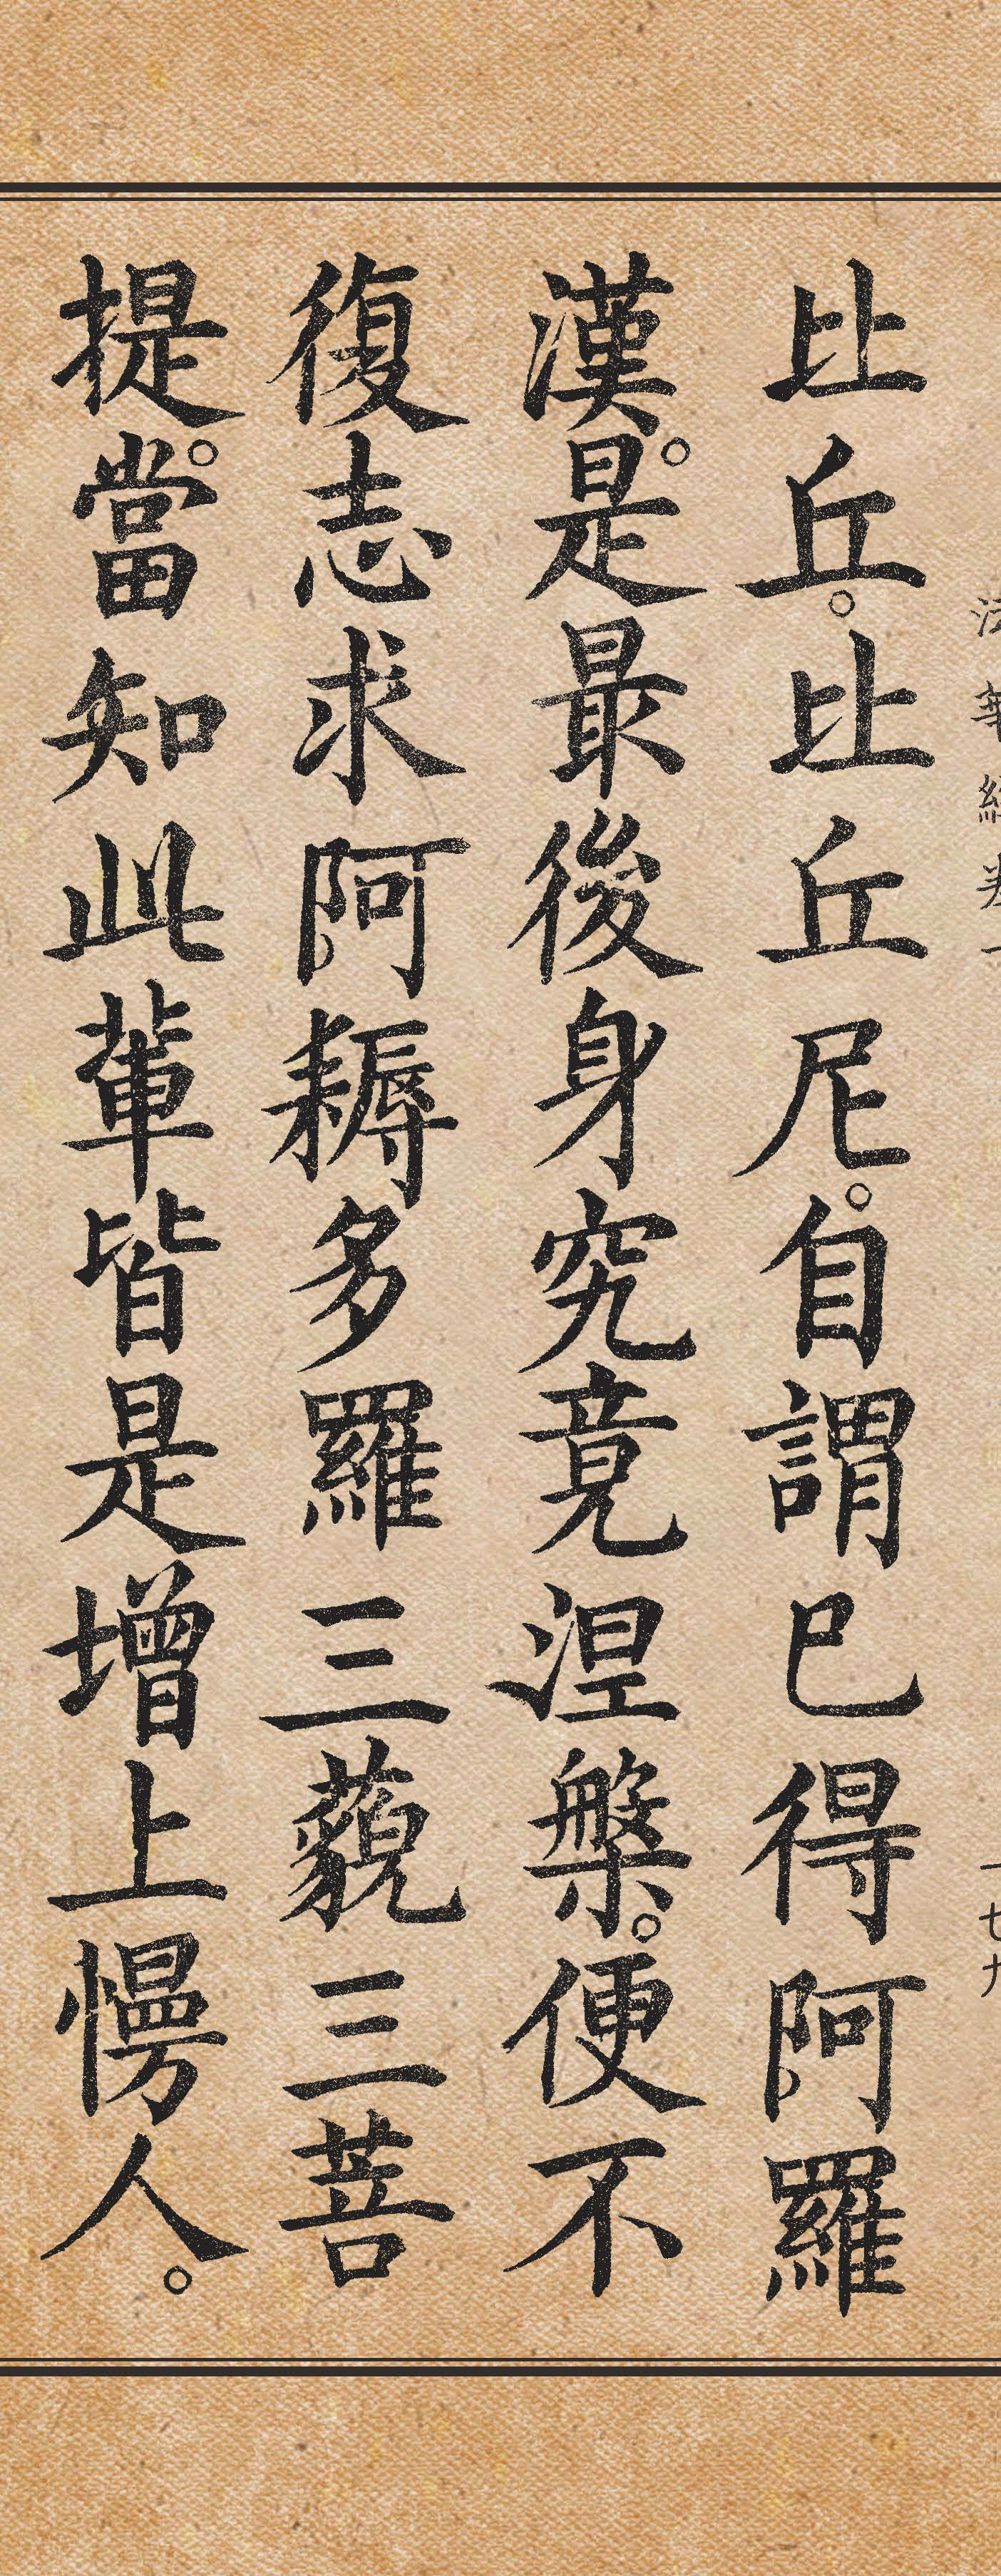 法華經卷一
一七九
比丘。比丘尼。自謂已得阿羅
漢。是最後身究竟涅槃。便不
復志求阿耨多羅三藐三菩
提。當知此輩皆是增上慢人。